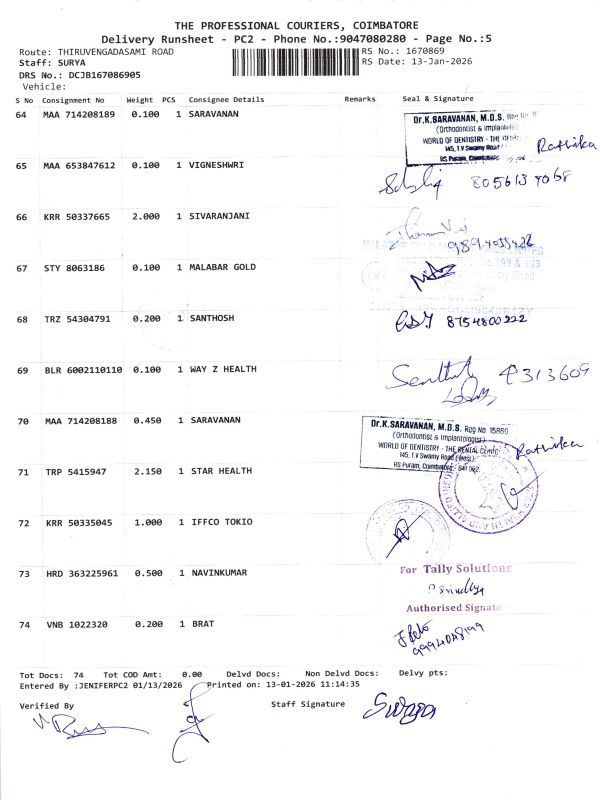 THE PROFESSIONAL COURIERS, COIMBATORE
Delivery Runsheet - PC2 - Phone No.:9047080280 - Page No.:5
Route: THIRUVENGADASAMI ROAD RS No.: 1670869
Staff: SURYA RS Date: 13-Jan-2026
DRS No.: DCJB167086905
Vehicle:
S No Consignment No Weight PCS Consignee Details Remarks Seal & Signature
64 MAA 714208189 0.100 1 SARAVANAN
Dr.K.SARAVANAN, M.D.S.
(Orthodontist & Implantologist)
WORLD OF DENTISTRY - THE
145, T.V Swamy Road
RS Puram, Coimbatore
Rathika
65 MAA 653847612 0.100 1 VIGNESHWRI
66 KRR 50337665 2.000 1 SIVARANJANI
67 STY 8063186 0.100 1 MALABAR GOLD
68 TRZ 54304791 0.200 1 SANTHOSH
8754800222
69 BLR 6002110110 0.100 1 WAY Z HEALTH
4313609
70 MAA 714208188 0.450 1 SARAVANAN
Dr.K.SARAVANAN, M.D.S. Reg No. 15860
(Orthodontist & Implantologist)
WORLD OF DENTISTRY - THE DENTAL CLINIC
145, T.V Swamy Road (West)
RS Puram, Coimbatore - 641 002
Rathika
71 TRP 5415947 2.150 1 STAR HEALTH
72 KRR 50335045 1.000 1 IFFCO TOKIO
73 HRD 363225961 0.500 1 NAVINKUMAR
For Tally Solutions
Authorised Signato
74 VNB 1022320 0.200 1 BRAT
Tot Docs: 74 Tot COD Amt: 0.00 Delvd Docs: Non Delvd Docs: Delvy pts:
Entered By :JENIFERPC2 01/13/2026 Printed on: 13-01-2026 11:14:35
Verified By Staff Signature